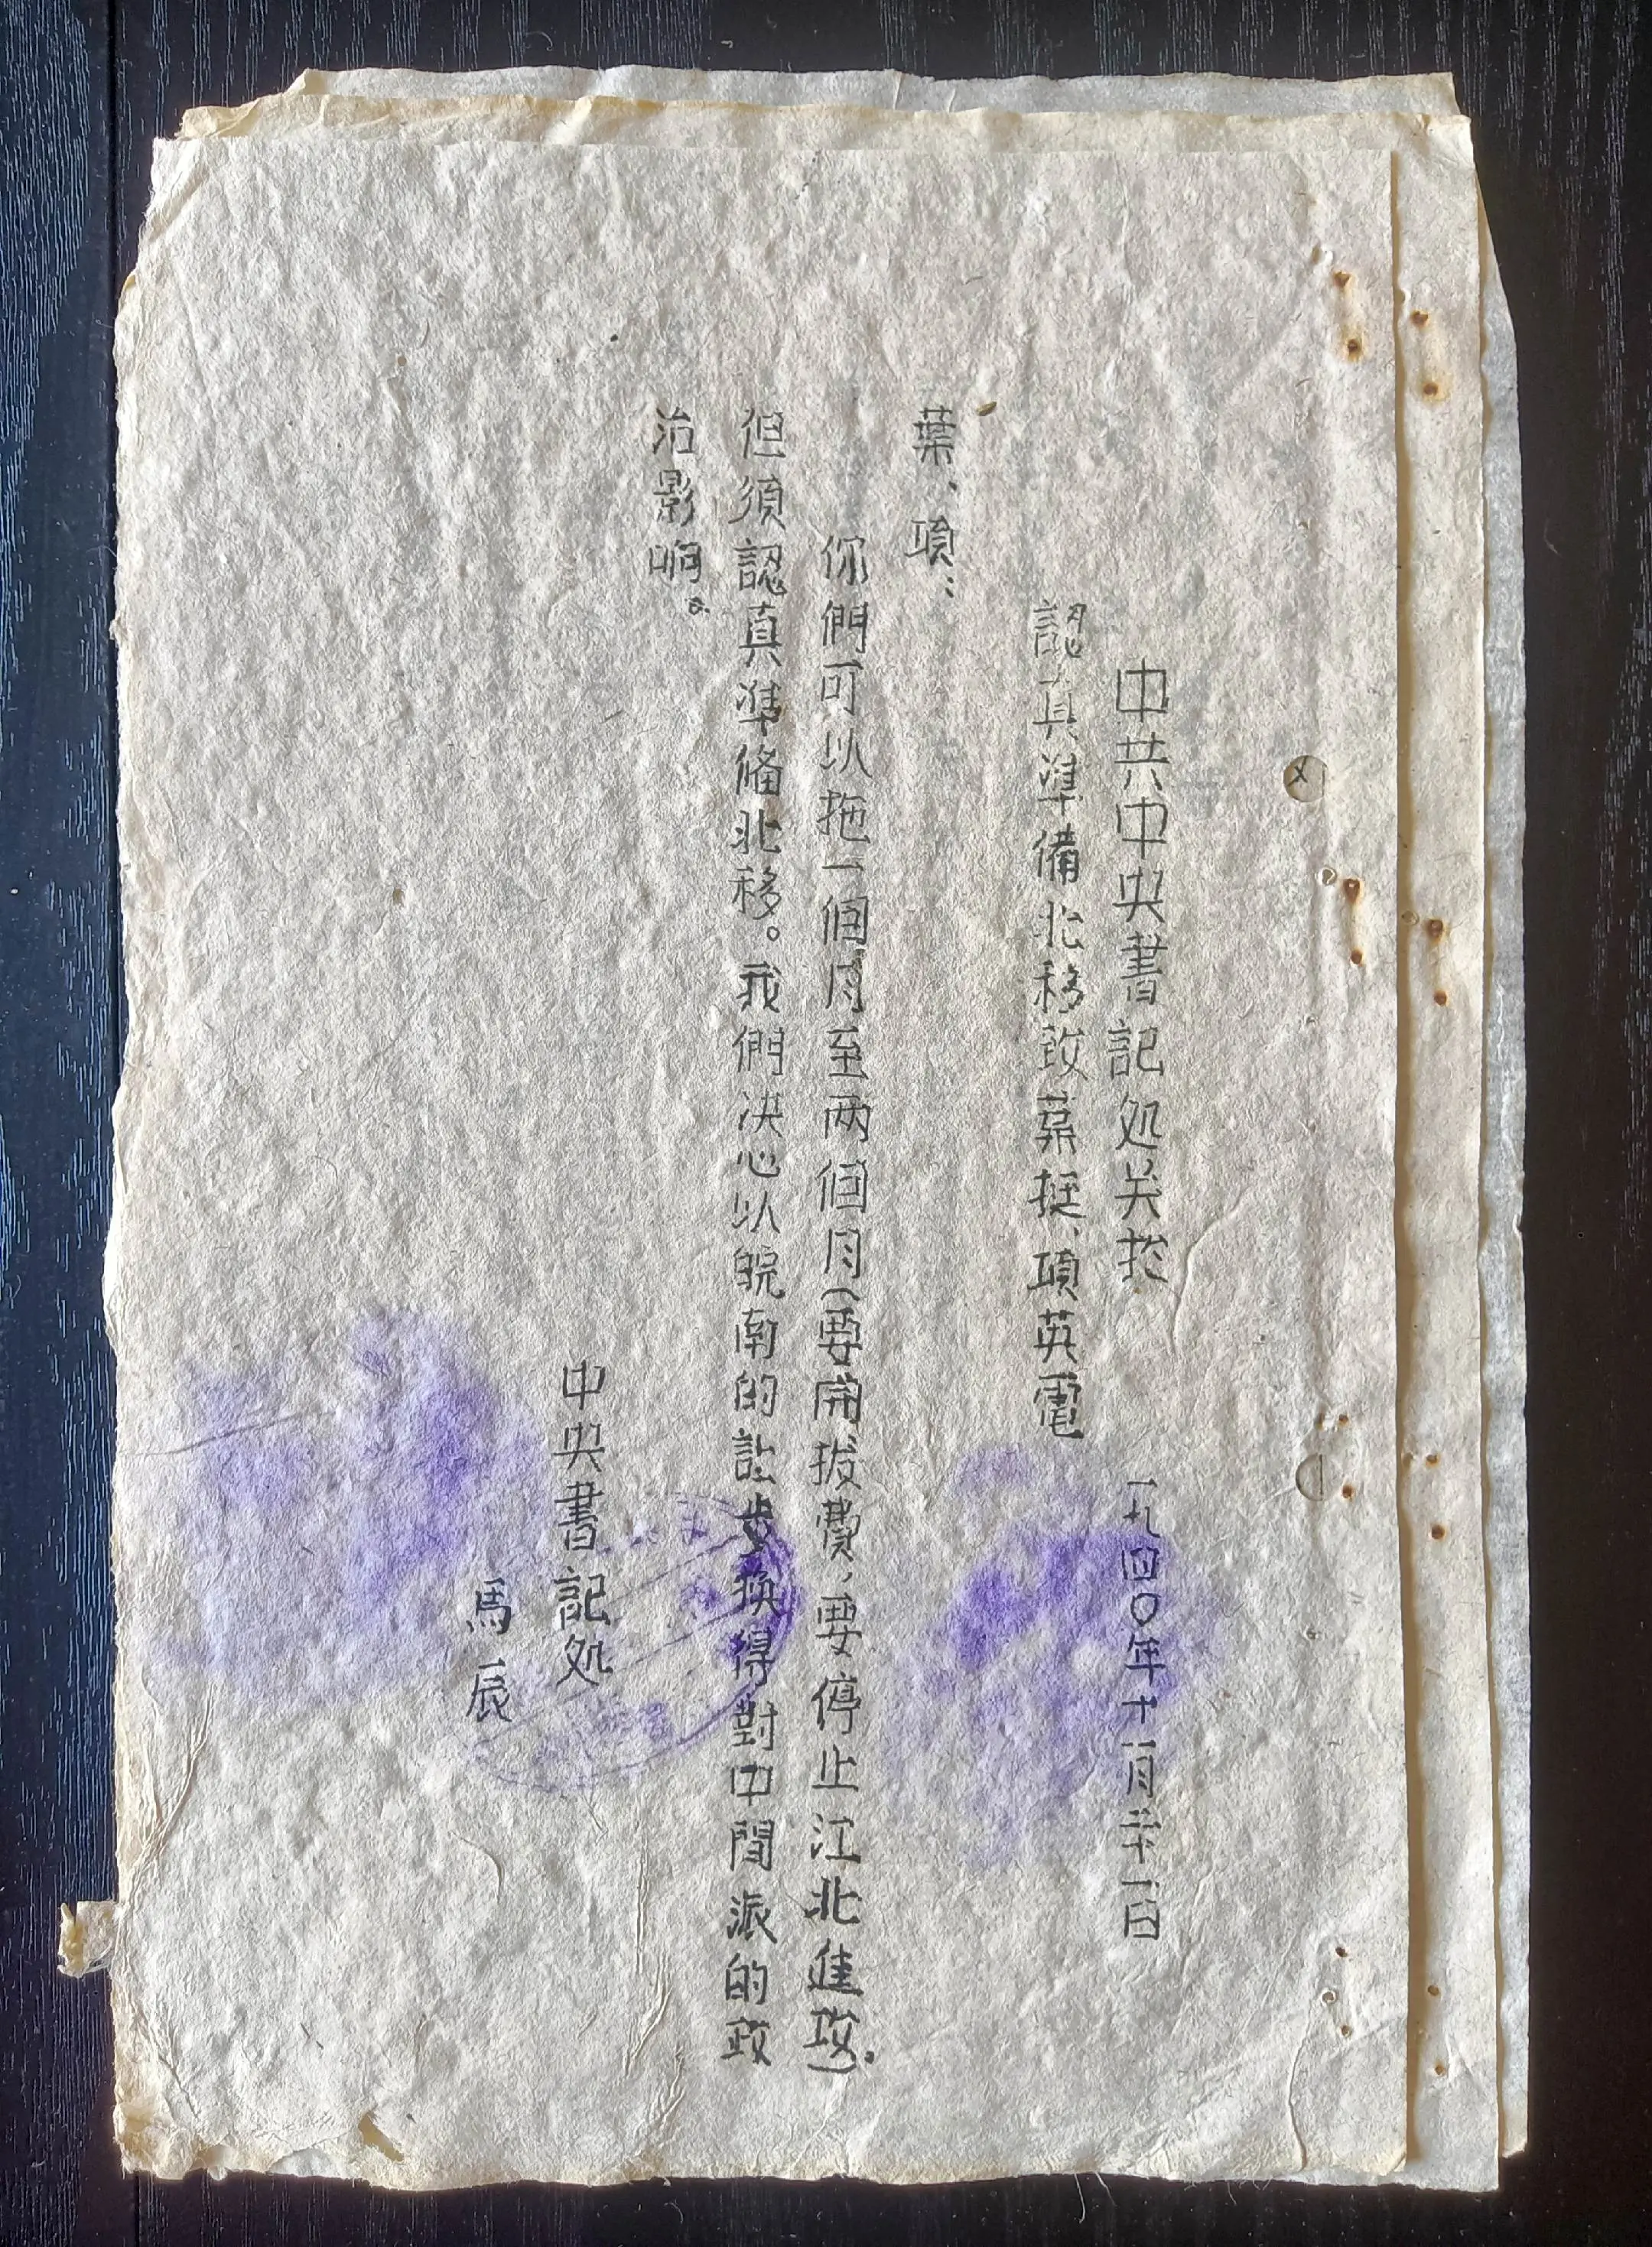 中共中央書記処关扵
認真準備北移致葉挺、項英電
一九四〇年十一月廿一日
葉、項：
你們可以拖一個月至两個月（要開拔費，要停止江北進攻）。
但須認真準俻北移。我們决心以皖南的讓步換得對中間派的政
治影响。
中央書記処
馬辰